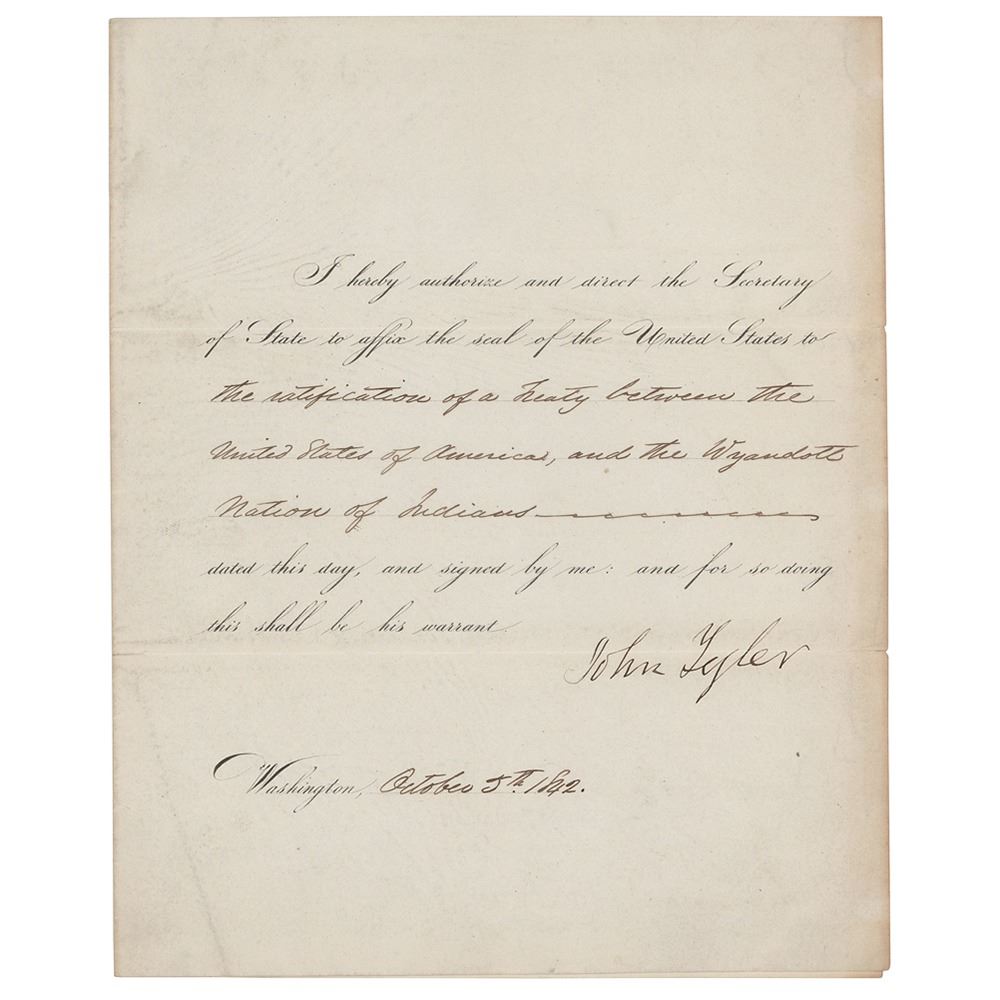 I hereby authorize and direct the Secretary
of State to affix the seal of the United States to
the ratification of a Treaty between the
United States of America, and the Wyandott
Nation of Indians
dated this day, and signed by me: and for so doing
this shall be his warrant.
John Tyler
Washington, October 5th. 1842.